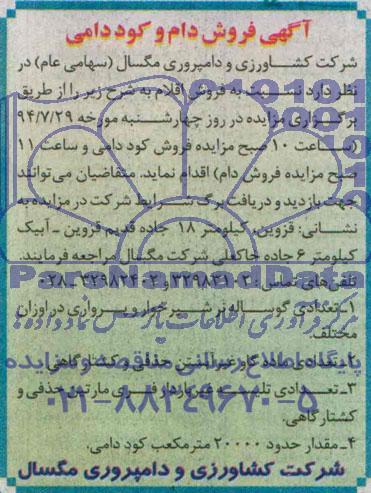 آگهی فروش دام و کود دامی
شرکت کشاورزی و دامپروری مگسال (سهامی عام) در
نظر دارد نسبت به فروش اقلام به شرح زیر را از طریق
برگزاری مزایده در روز چهارشنبه مورخه ۹۴/۷/۲۹
(ساعت ۱۰ صبح مزایده فروش کود دامی و ساعت ۱۱
صبح مزایده فروش دام) اقدام نماید. متقاضیان می‌توانند
جهت بازدید و دریافت برگ شرایط شرکت در مزایده به
نشانی: قزوین، کیلومتر ۱۸ جاده قدیم قزوین - آبیک
کیلومتر ۶ جاده خاکعلی شرکت مگسال مراجعه فرمایند.
تلفن‌های تماس: ۳۲۹۸۲۱۰۲ و ۳۲۹۸۲۴۰۲-۰۲۸
۱- تعدادی گوساله نر شیرخوار و پرواری در اوزان
مختلف.
۲- تعدادی ماده گاو غیرآبستن حذفی و کشتارگاهی
۳- تعدادی تلیسه فری مارتین حذفی و
کشتارگاهی.
۴- مقدار حدود ۲۰۰۰۰ مترمکعب کود دامی.
شرکت کشاورزی و دامپروری مگسال
ParsNamadData
مرکز فرآوری اطلاعات پارس نماد داده ها
پایگاه اطلاع رسانی مناقصه و مزایده
۰۲۱-۸۸۳۴۹۶۷۰-۵